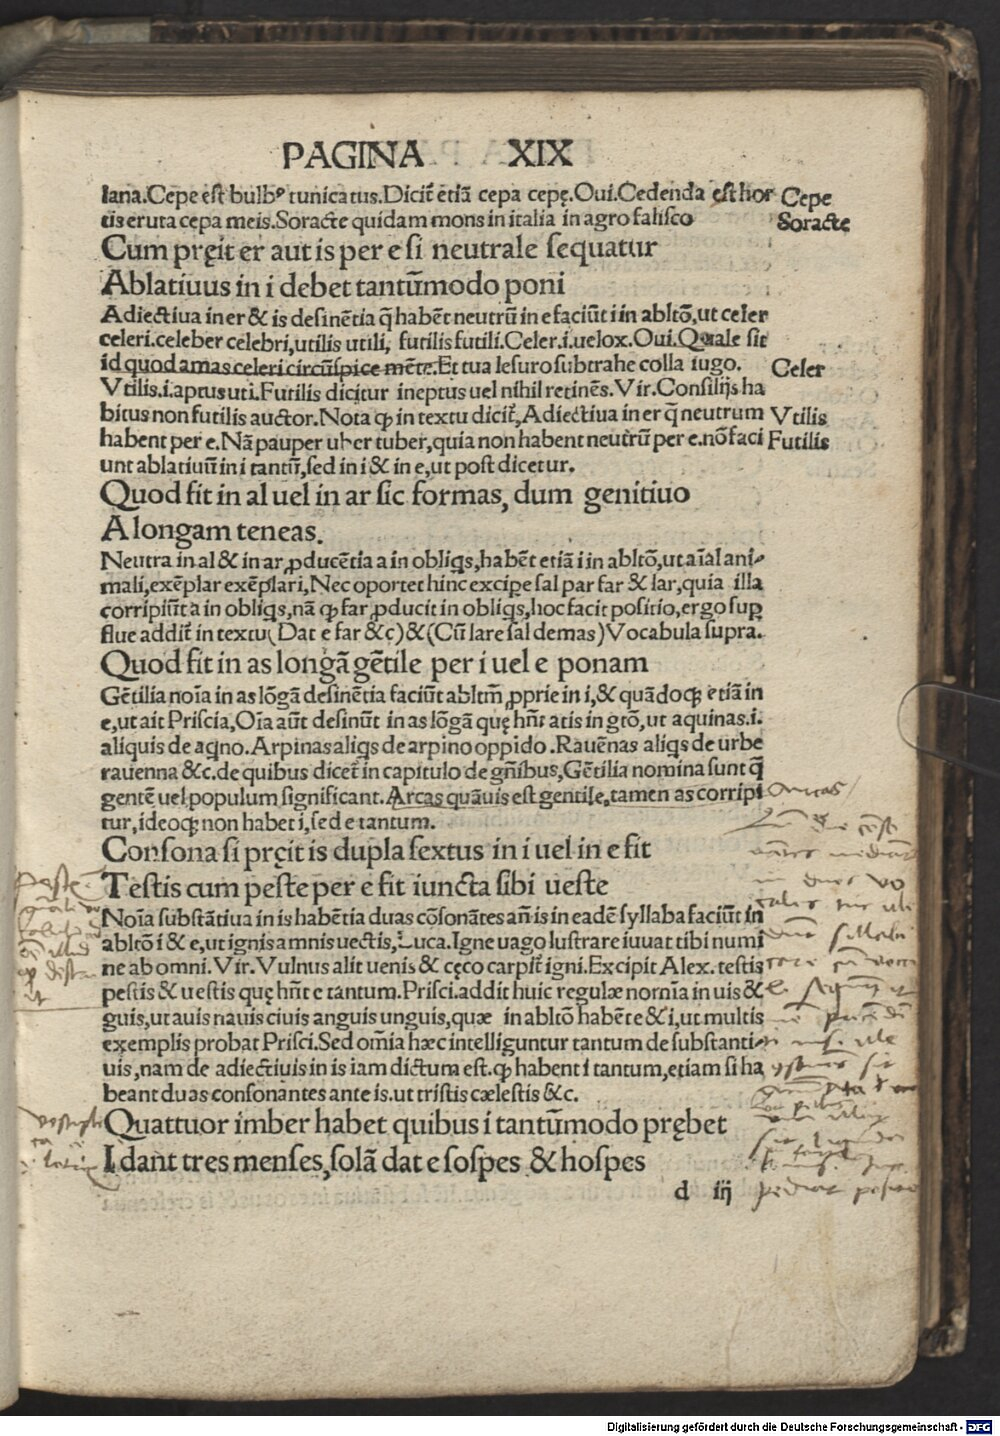 PAGINA XIX
lana.Cepe est bulbꝰ tunicatus.Dicit̃ etiã cepa cepę.Oui.Cedenda est hor
tis eruta cepa meis.Soracte quidam mons in italia in agro falisco
Cepe
Soracte
Cum pręit er aut is per e si neutrale sequatur
Ablatiuus in i debet tantũmodo poni
Adiectiua in er & is desinẽtia q̃ habẽt neutrũ in e faciũt i in abltõ,ut celer
celeri.celeber celebri,utilis utili, futilis futili.Celer.i.uelox.Oui.Quale sit
id quod amas celeri circũspice mẽte.Et tua lesuro subtrahe colla iugo.
Celer
Vtilis.i.aptus uti.Futilis dicitur ineptus uel nihil retinẽs.Vir.Consilijs ha
bitus non futilis auctor.Nota ꝙ in textu dicit̃,Adiectiua in er q̃ neutrum
Vtilis
habent per e.Nã pauper uber tuber,quia non habent neutrũ per e.nõ faci
Futilis
unt ablatiuũ in i tantũ,sed in i & in e,ut post dicetur.
Quod fit in al uel in ar sic formas, dum genitiuo
A longam teneas.
Neutra in al & in ar ꝓducẽtia a in obliqs,habẽt etiã i in abltõ,ut aĩal ani-
mali,exẽplar exẽplari,Nec oportet hinc excipe sal par far & lar,quia illa
corripiũt a in obliqs,nã ꝙ far ꝓducit in obliqs,hoc facit positio,ergo suꝑ
flue addit̃ in textu(Dat e far &c)&(Cũ lare sal demas)Vocabula supra.
Quod fit in as longã gẽtile per i uel e ponam
Gẽtilia noĩa in as lõgã desinẽtia faciũt abltm̃ ꝓprie in i,& quãdoqꝫ etiã in
e,ut ait Priscia,Oĩa aũt desinũt in as lõgã quę hñt atis in gtõ,ut aquinas.i.
aliquis de aqno.Arpinas aliqs de arpino oppido.Rauẽnas aliqs de urbe
rauenna &c.de quibus dicet̃ in capitulo de gñibus,Gẽtilia nomina sunt q̃
gentẽ uel populum significant.Arcas quãuis est gentile,tamen as corripi
tur,ideoqꝫ non habet i,sed e tantum.
Consona si pręit is dupla sextus in i uel in e fit
Testis cum peste per e fit iuncta sibi ueste
Noĩa substãtiua in is habẽtia duas cõsonãtes añ is in eadẽ syllaba faciũt in
abltõ i & e,ut ignis amnis uectis,Luca.Igne uago lustrare iuuat tibi numi
ne ab omni.Vir.Vulnus alit uenis & cęco carpit̃ igni.Excipit Alex.testis
pestis & uestis quę hñt e tantum.Prisci.addit huic regulæ nomĩa in uis &
guis,ut auis nauis ciuis anguis unguis,quæ in abltõ habẽt e & i,ut multis
exemplis probat Prisci.Sed om̃ia hæc intelliguntur tantum de substanti-
uis,nam de adiectiuis in is iam dictum est.ꝙ habent i tantum,etiam si ha
beant duas consonantes ante is.ut tristis cælestis &c.
Quattuor imber habet quibus i tantũmodo prębet
I dant tres menses,solã dat e sospes & hospes
d iij
Digitalisierung gefördert durch die Deutsche Forschungsgemeinschaft - DFG